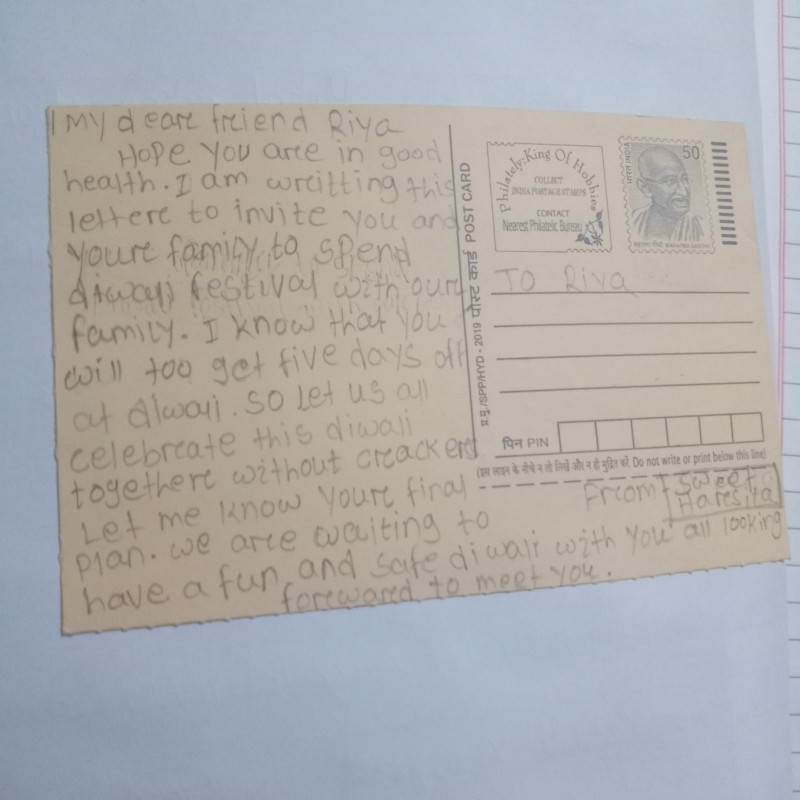 My deare friend Riya
Hope you are in good
health. I am writting this
lettere to invite you and
youre family to spend
diwali festival with oure
family. I know that you
will too get five days off
at diwali. so let us all
celebreate this diwali
togethere without creackers
Let me know youre final
plan. we are waiting to
have a fun and safe diwali with you all looking
forewared to meet you.
पोस्ट कार्ड POST CARD
प्र.मु./SPP/HYD - 2019
Philately: King Of Hobbies
COLLECT
INDIA POSTAGE STAMPS
CONTACT
Nearest Philatelic Bureau
भारत INDIA
50
महात्मा गांधी MAHATMA GANDHI
TO Riya
पिन PIN
(इस लाइन के नीचे न तो लिखें और न ही मुद्रित करें. Do not write or print below this line)
From
Sweet
Haresita